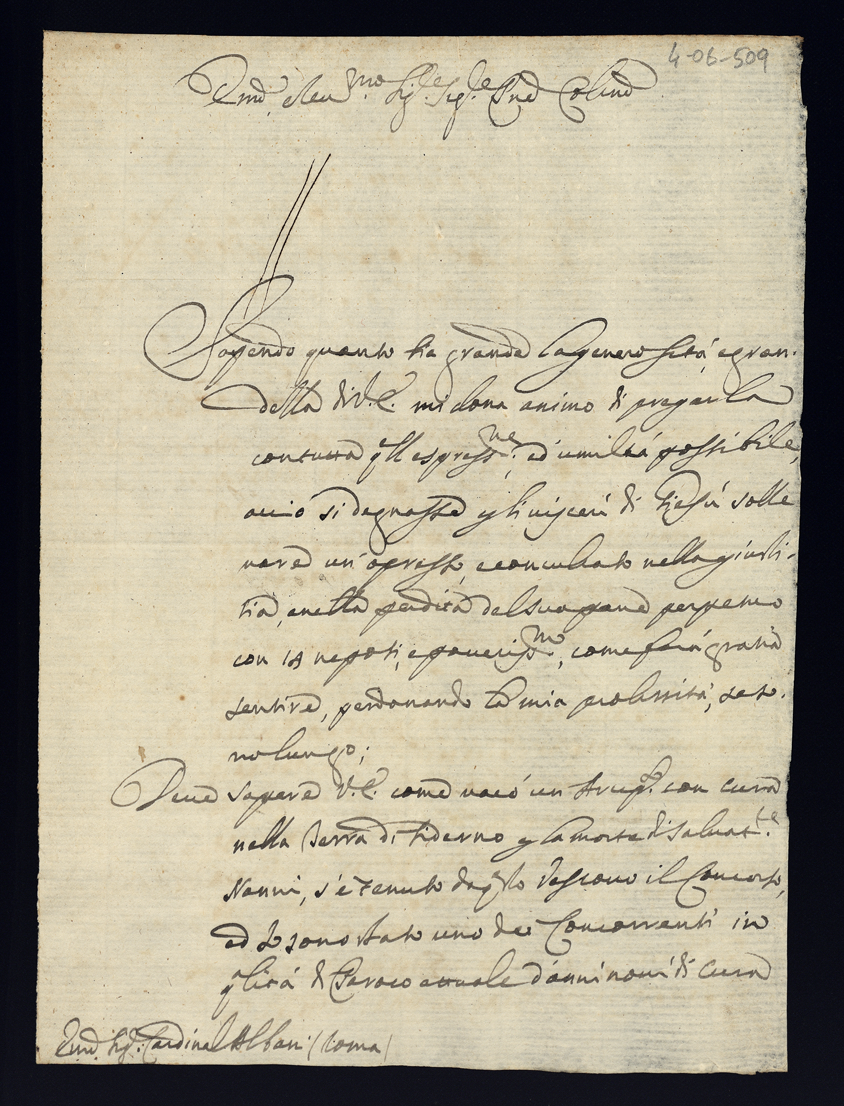 4-06-509
Emo, e Reumo Sigre Sigre Pne Colmo
Sapendo quanto sia grande la generosità, e gran-
dezza di V.E. mi dona animo di pregarla
con tutta qll espressne, ed umiltà possibile,
acciò si degnasse p li visceri di Giesù solle
vare un' opresso, e conculcato nella giusti-
tia, e nella perdita del suo pane perpetuo
con 14 nepoti, e poverissmo, come farà gratia
sentire, perdonando la mia prolissità, se so-
no lungo;
Deve sapere V.E. come vacò un Arcip. con cura
nella Terra di Siderno p la morte di Salvatre
Nanni, s'è tenuto da qsto Vescovo il Concorso,
ed Io sono stato uno dei Concorrenti in
qlità di Paroco attuale d'anni novi di cura
Emo Sigr Cardinal Albani (Roma)